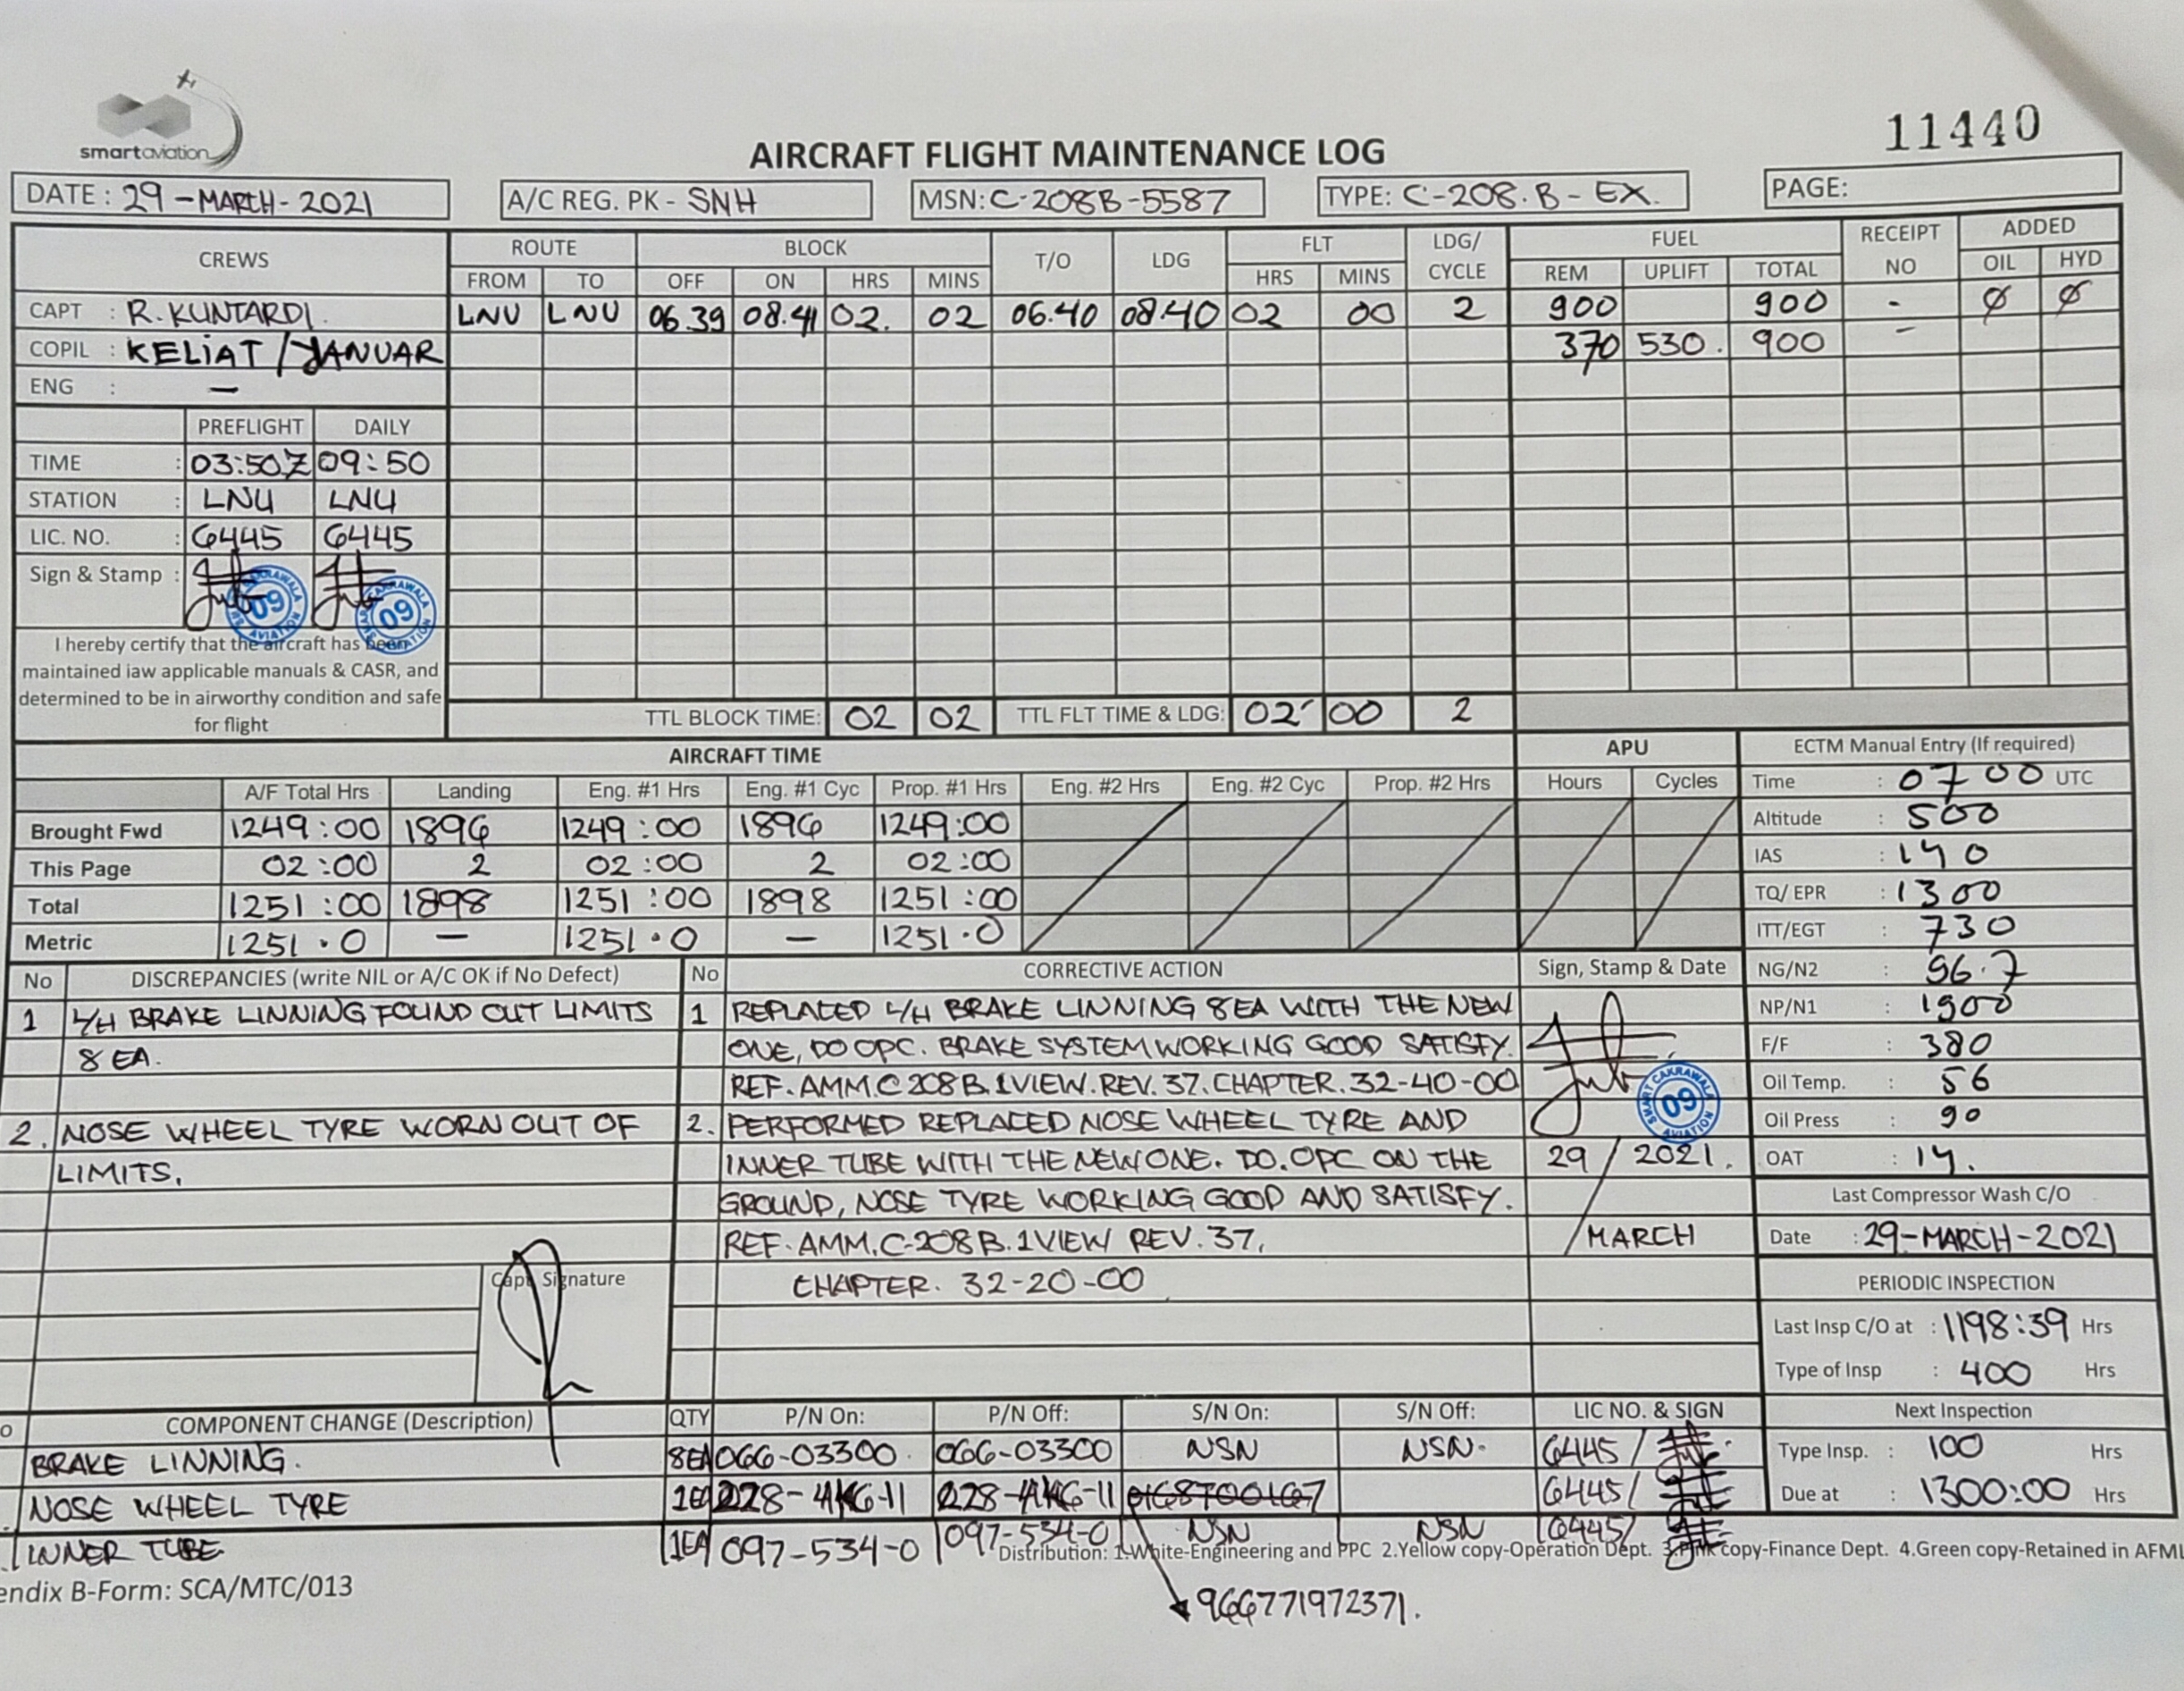 smartaviation
11440
AIRCRAFT FLIGHT MAINTENANCE LOG
DATE : 29 - MARCH - 2021 A/C REG. PK - SNH MSN: C-208B-5587 TYPE: C-208.B - EX. PAGE:
CREWS ROUTE BLOCK T/O LDG FLT LDG/ CYCLE FUEL RECEIPT NO ADDED
FROM TO OFF ON HRS MINS HRS MINS REM UPLIFT TOTAL OIL HYD
CAPT : R. KUNTARDI. LNU LNU 06.39 08.41 02. 02 06.40 08.40 02 00 2 900 900 - Ø Ø
COPIL : KELIAT / JANUAR 370 530. 900 -
ENG : -
PREFLIGHT DAILY
TIME : 03:50Z 09:50
STATION : LNU LNU
LIC. NO. : 6445 6445
Sign & Stamp :
SMART CAKRAWALA AVIATION 09
SMART CAKRAWALA AVIATION 09
I hereby certify that the aircraft has been
maintained iaw applicable manuals & CASR, and
determined to be in airworthy condition and safe
for flight
TTL BLOCK TIME: 02 02 TTL FLT TIME & LDG: 02 00 2
AIRCRAFT TIME APU ECTM Manual Entry (If required)
A/F Total Hrs Landing Eng. #1 Hrs Eng. #1 Cyc Prop. #1 Hrs Eng. #2 Hrs Eng. #2 Cyc Prop. #2 Hrs Hours Cycles
Brought Fwd 1249:00 1896 1249:00 1896 1249:00
This Page 02:00 2 02:00 2 02:00
Total 1251:00 1898 1251:00 1898 1251:00
Metric 1251.0 - 1251.0 - 1251.0
Time : 0700 UTC
Altitude : 500
IAS : 140
TQ/ EPR : 1300
ITT/EGT : 730
NG/N2 : 96.7
NP/N1 : 1900
F/F : 380
Oil Temp. : 56
Oil Press : 90
OAT : 14.
Last Compressor Wash C/O
Date : 29-MARCH-2021
PERIODIC INSPECTION
Last Insp C/O at : 1198:39 Hrs
Type of Insp : 400 Hrs
Next Inspection
Type Insp. : 100 Hrs
Due at : 1300:00 Hrs
No DISCREPANCIES (write NIL or A/C OK if No Defect)
1 L/H BRAKE LINNING FOUND OUT LIMITS
8 EA.
2. NOSE WHEEL TYRE WORN OUT OF
LIMITS.
Capt. Signature
No CORRECTIVE ACTION Sign, Stamp & Date
1 REPLACED L/H BRAKE LINNING 8EA WITH THE NEW
ONE, DO OPC. BRAKE SYSTEM WORKING GOOD SATISFY.
REF. AMM.C 208 B.1VIEW.REV.37.CHAPTER.32-40-00
2. PERFORMED REPLACED NOSE WHEEL TYRE AND
INNER TUBE WITH THE NEW ONE. DO.OPC ON THE
GROUND, NOSE TYRE WORKING GOOD AND SATISFY.
REF.AMM.C-208 B.1VIEW REV.37.
CHAPTER. 32-20-00
SMART CAKRAWALA AVIATION 09
29 / 2021.
/ MARCH
o COMPONENT CHANGE (Description) QTY P/N On: P/N Off: S/N On: S/N Off: LIC NO. & SIGN
BRAKE LINNING. 8EA 066-03300. 066-03300 NSN NSN. 6445 /
NOSE WHEEL TYRE 1EA 6445 /
INNER TUBE 1EA 097-534-0 097-534-0 NSN NSN 6445 /
Distribution: 1.White-Engineering and PPC 2.Yellow copy-Operation Dept. 3.Pink copy-Finance Dept. 4.Green copy-Retained in AFML
endix B-Form: SCA/MTC/013
966771972371.